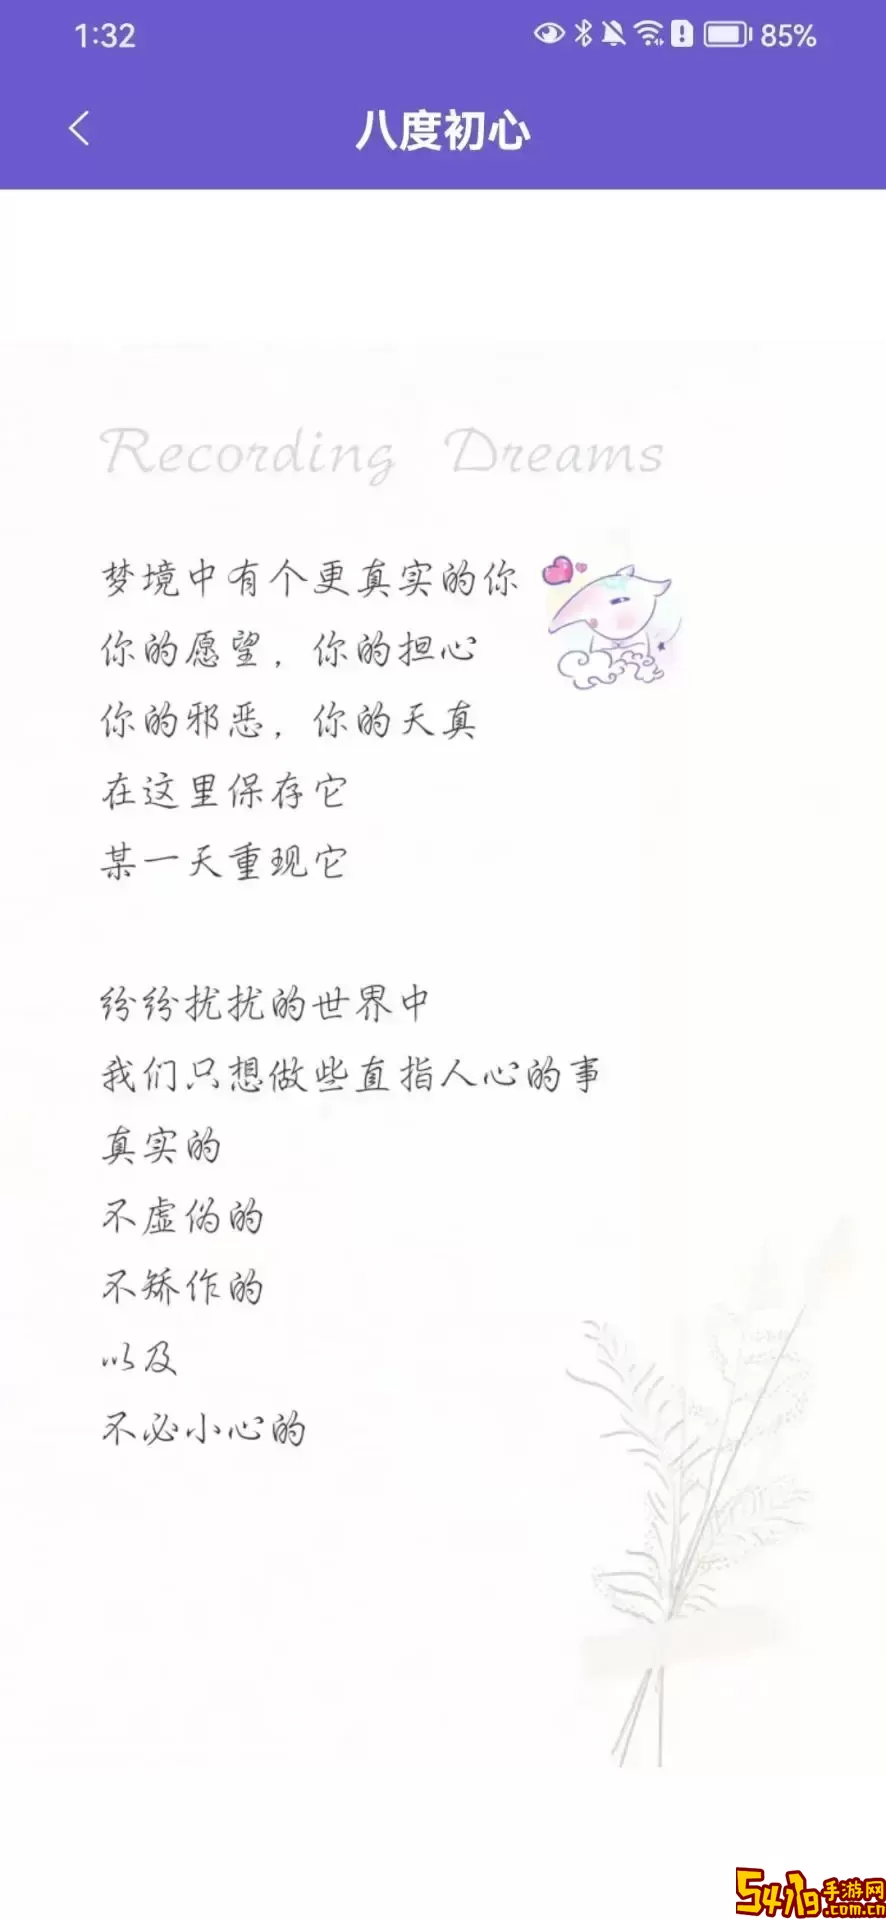 1:32
85%
八度初心
Recording Dreams
梦境中有个更真实的你
你的愿望，你的担心
你的邪恶，你的天真
在这里保存它
某一天重现它
纷纷扰扰的世界中
我们只想做些直指人心的事
真实的
不虚伪的
不矫作的
以及
不必小心的
5419手游网
.com.cn